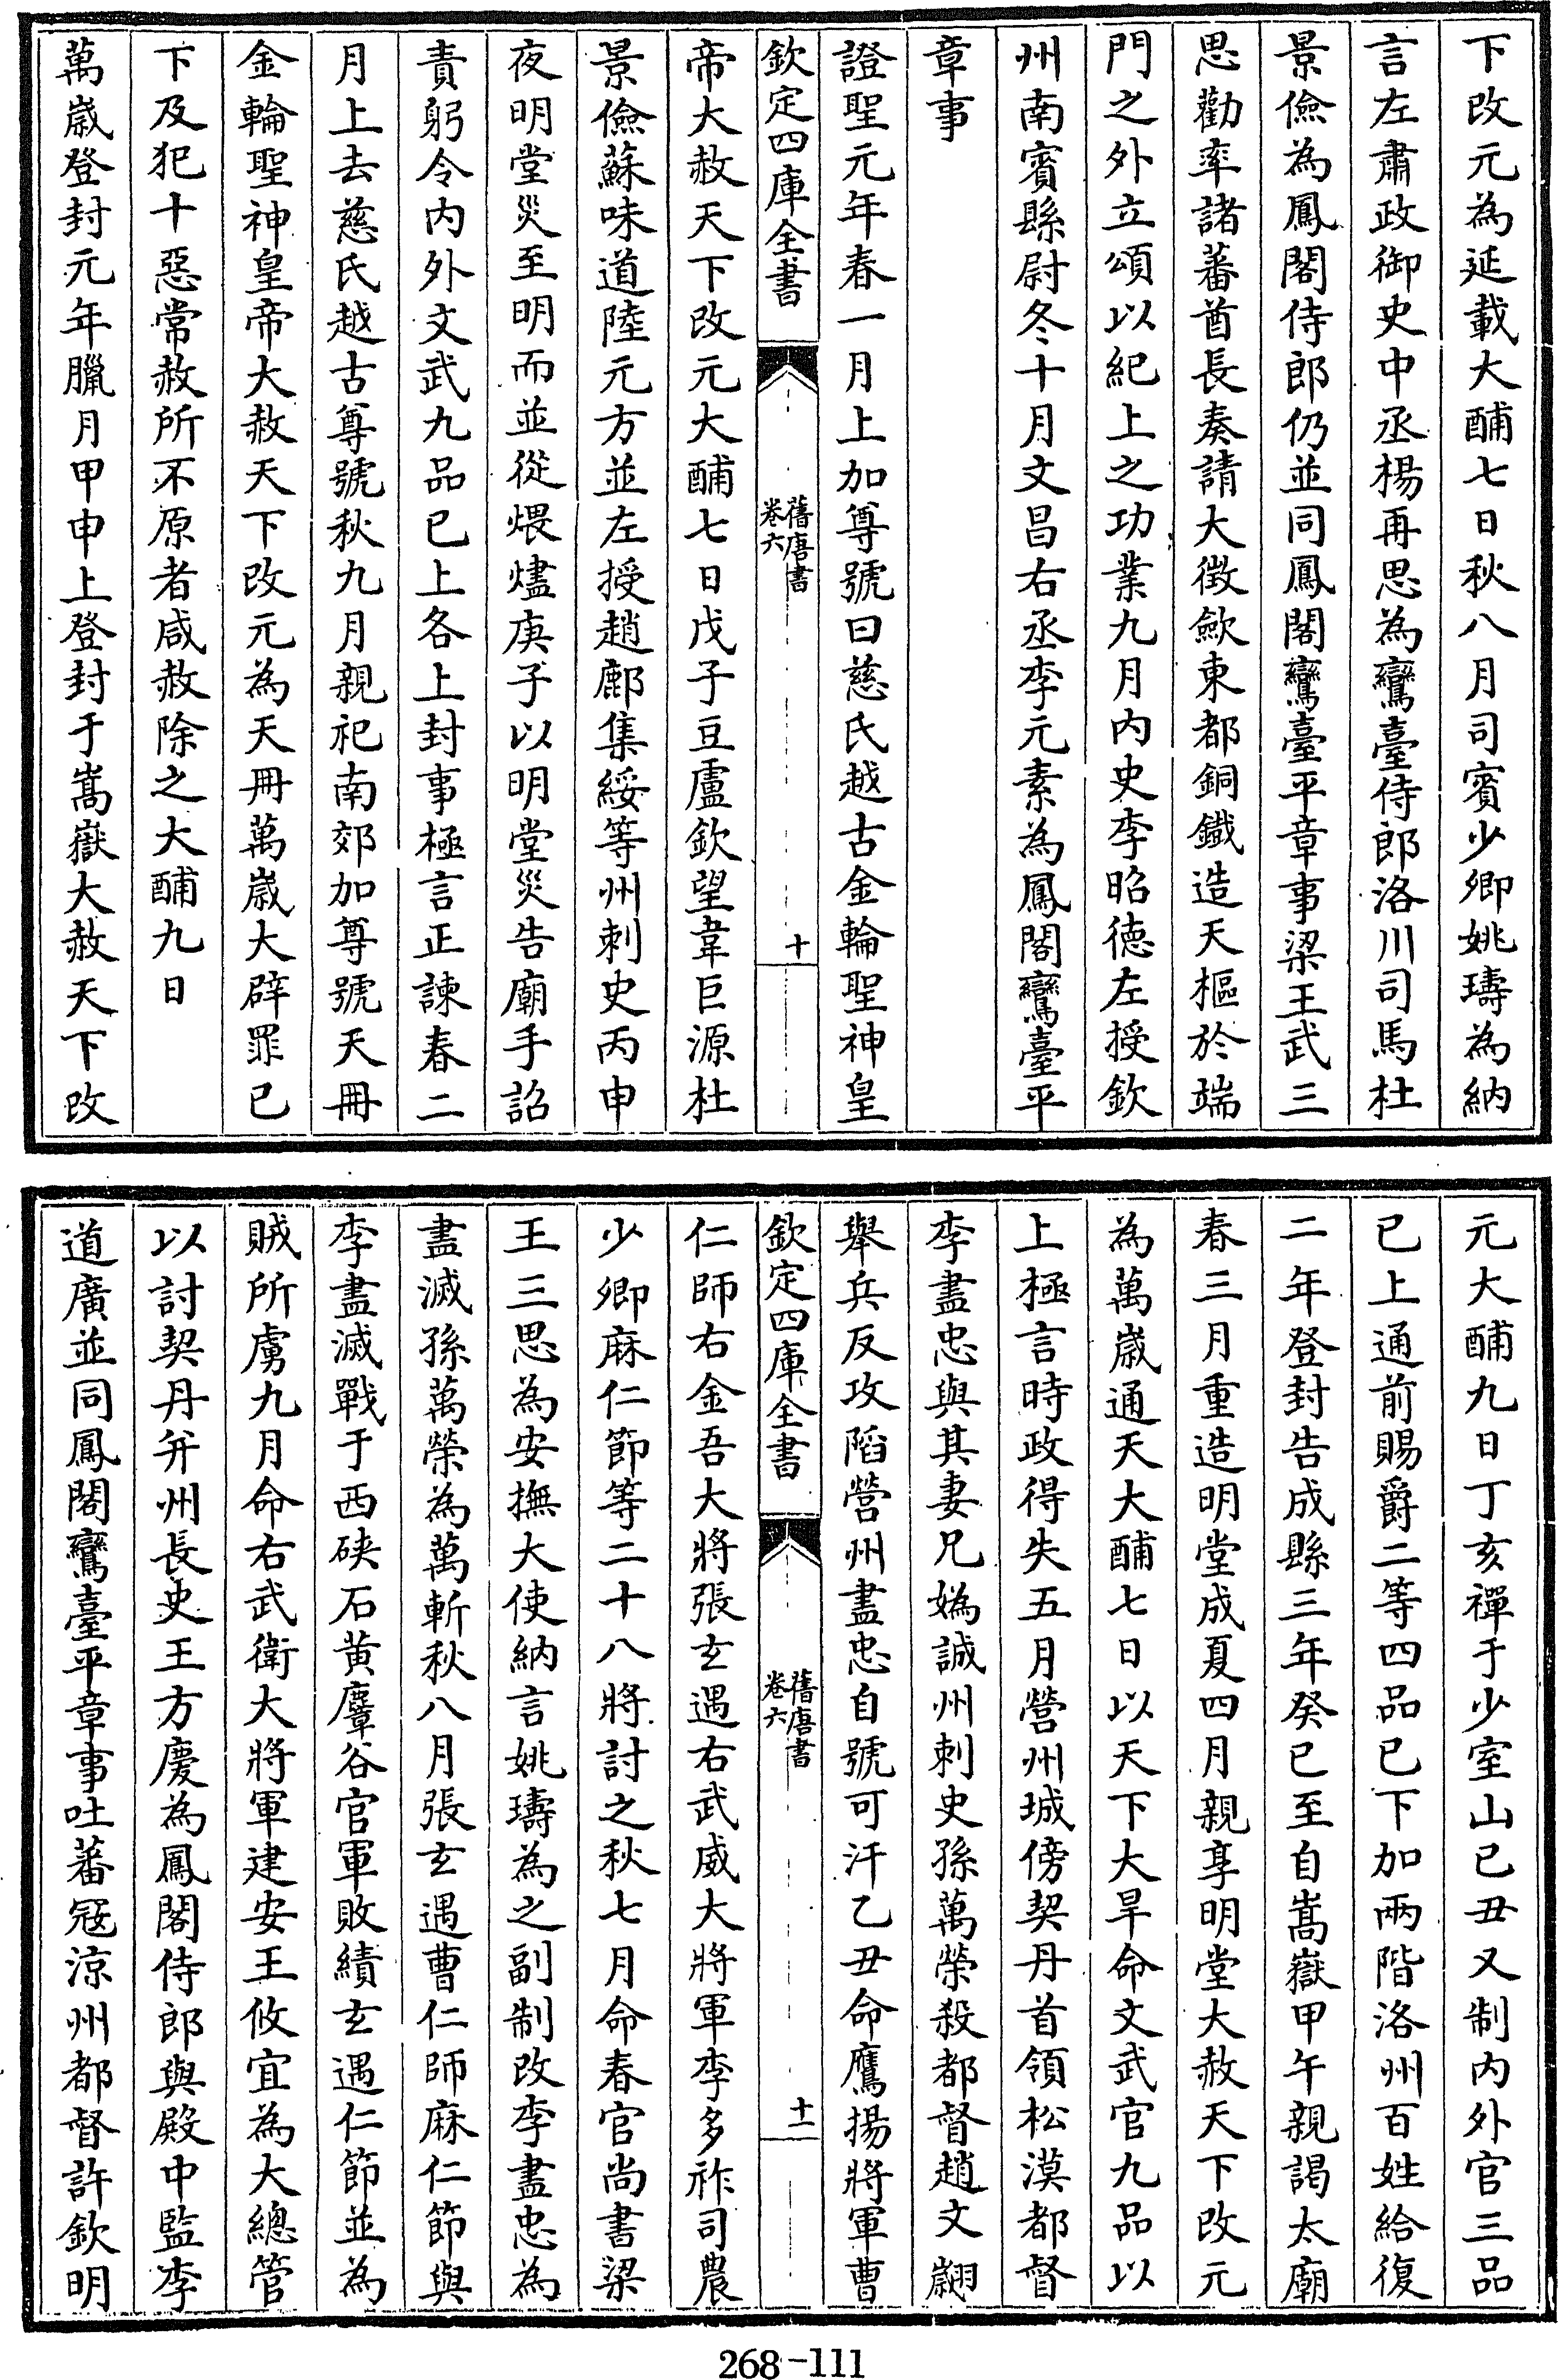 下改元為延載大酺七日秋八月司賓少卿姚璹為納
言左肅政御史中丞楊再思為鸞臺侍郎洛川司馬杜
景儉為鳳閣侍郎仍並同鳳閣鸞臺平章事梁王武三
思勸率諸蕃酋長奏請大徴歛東都銅鐵造天樞於端
門之外立頌以紀上之功業九月内史李昭徳左授欽
州南賓縣尉冬十月文昌右丞李元素為鳳閣鸞臺平
章事
證聖元年春一月上加尊號曰慈氏越古金輪聖神皇
欽定四庫全書
舊唐書
卷六
十
帝大赦天下改元大酺七日戊子豆盧欽望韋巨源杜
景儉蘇味道陸元方並左授趙鄜集綏等州刺史丙申
夜明堂災至明而並從煨燼庚子以明堂災告廟手詔
責躬令内外文武九品已上各上封事極言正諫春二
月上去慈氏越古尊號秋九月親祀南郊加尊號天冊
金輪聖神皇帝大赦天下改元為天冊萬歲大辟罪已
下及犯十惡常赦所不原者咸赦除之大酺九日
萬歲登封元年臘月甲申上登封于嵩嶽大赦天下改
元大酺九日丁亥禪于少室山已丑又制内外官三品
已上通前賜爵二等四品已下加兩階洛州百姓給復
二年登封告成縣三年癸已至自嵩嶽甲午親謁太廟
春三月重造明堂成夏四月親享明堂大赦天下改元
為萬歲通天大酺七日以天下大旱命文武官九品以
上極言時政得失五月營州城傍契丹首領松漠都督
李盡忠與其妻兄媯誠州刺史孫萬榮殺都督趙文翽
舉兵反攻陷營州盡忠自號可汗乙丑命鷹揚將軍曹
欽定四庫全書
舊唐書
卷六
十一
仁師右金吾大將張玄遇右武威大將軍李多祚司農
少卿麻仁節等二十八將討之秋七月命春官尚書梁
王三思為安撫大使納言姚璹為之副制改李盡忠為
盡滅孫萬榮為萬斬秋八月張玄遇曹仁師麻仁節與
李盡滅戰于西硤石黄麞谷官軍敗績玄遇仁節並為
賊所虜九月命右武衛大將軍建安王攸宜為大總管
以討契丹并州長史王方慶為鳳閣侍郎與殿中監李
道廣並同鳳閣鸞臺平章事吐蕃冦涼州都督許欽明
268-111